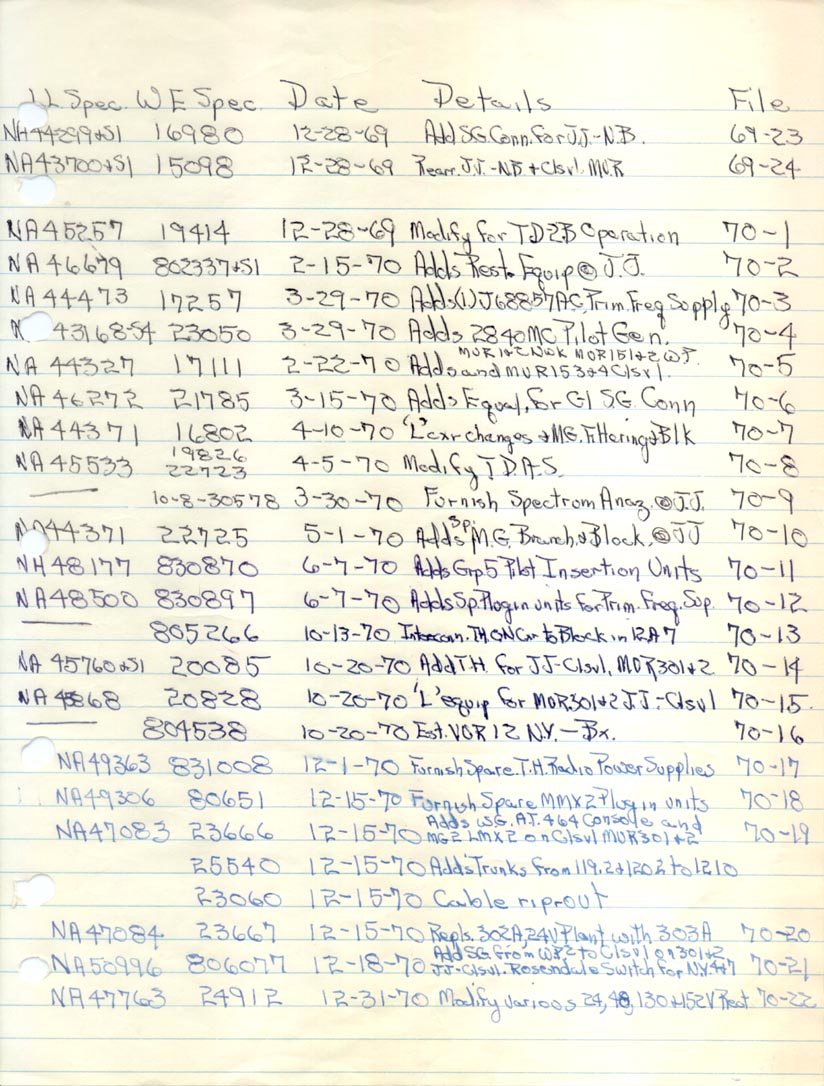 LL Spec. W E Spec. Date Details File
NA44299+S1 16980 12-28-69 Add SG. Conn. for J.J.-N.B. 69-23
NA43700+S1 15098 12-28-69 Rearr. J.J.-NB + Clsvl. MUR 69-24
NA45257 19414 12-28-69 Modify for TD2B Operation 70-1
NA46679 802337+S1 2-15-70 Adds Rest. Equip @ J.J. 70-2
NA44473 17257 3-29-70 Adds(1) J68857AC, Prim. Freq Supply 70-3
43168-S4 23050 3-29-70 Adds 2840 MC Pilot Gen. 70-4
MUR 1+2 NWK MUR 151+2 W.P.
NA 44327 17111 2-22-70 Adds and MUR 153+4 Clsvl. 70-5
NA46272 21785 3-15-70 Adds Equal, for G1 SG. Conn 70-6
NA44371 16802 4-10-70 "L" cxr changes + MG. Filtering + Blk 70-7
19826
NA45533 22723 4-5-70 Modify T.D.A.S. 70-8
— 10-8-30578 3-30-70 Furnish Spectrum Anaz. @ J.J. 70-9
NA44371 22725 5-1-70 Adds 3 pi. M.G. Branch. & Block. @ JJ 70-10
NA48177 830870 6-7-70 Adds Grp 5 Pilot Insertion Units 70-11
NA48500 830897 6-7-70 Adds Sp. Plug in units for Prim. Freq. Sup. 70-12
— 805266 10-13-70 Interconn. TH ON Car to Block in 12A7 70-13
NA 45760+S1 20085 10-20-70 Add T.H. for JJ-Clsvl, MUR 301+2 70-14
NA 868 20828 10-20-70 "L" equip for MUR 301+2 JJ.-Clsvl 70-15
— 804538 10-20-70 Est. VOR 12 N.Y. - Bx. 70-16
NA49363 831008 12-1-70 Furnish Spare T.H. Radio Power Supplies 70-17
NA49306 80651 12-15-70 Furnish Spare MMX2 Plug in units 70-18
Adds W.G. A.T. 464 Console and
NA47083 23666 12-15-70 MG2 LMX2 on Clsvl MUR 301+2 70-19
25540 12-15-70 Adds Trunks from 119, 2+1202 to 1210
23060 12-15-70 Cable riprout
NA47084 23667 12-15-70 Repls. 302A, 24V Plant with 303A 70-20
Add SG from WP2 to Clsvl on 301+2
NA50996 806077 12-18-70 JJ-Clsvl. Rosendale Switch for N.Y. 4+7 70-21
NA47763 24912 12-31-70 Modify various 24, 48, 130 + 152V Rect 70-22